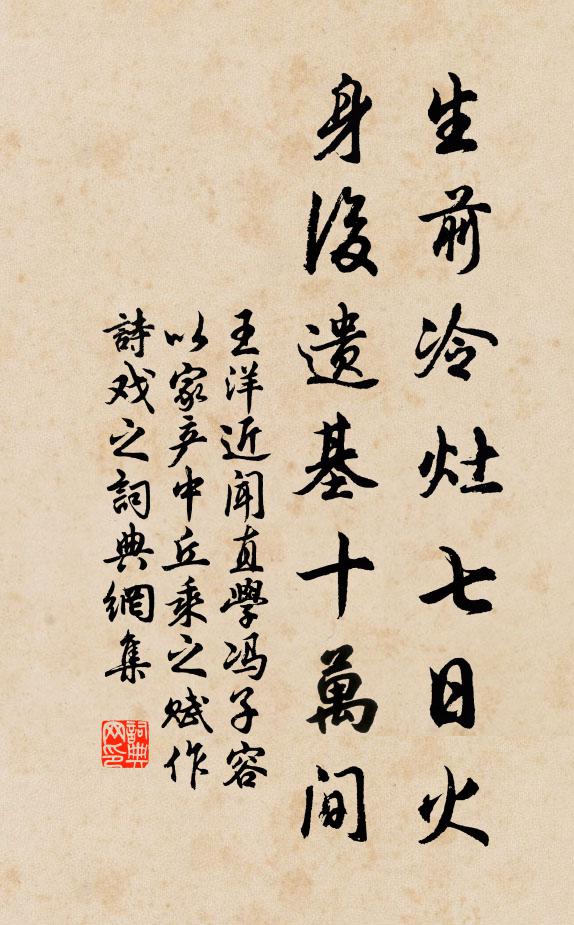 生前冷灶七日火
身後遗基十萬间
王洋近闻直學冯子容
以家产中丘乘之赋作
詩戏之詞典網集
詞典网印